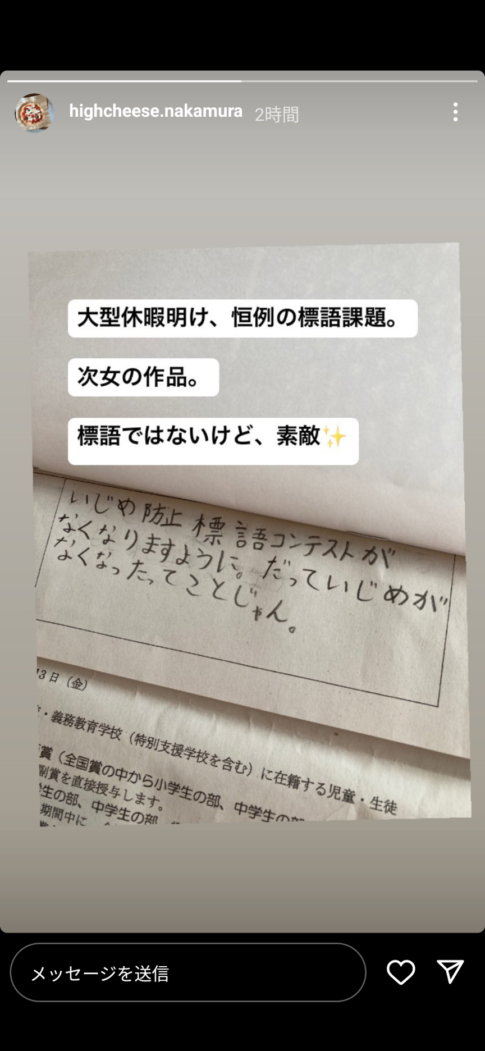 highcheese.nakamura 2時間
大型休暇明け、恒例の標語課題。
次女の作品。
標語ではないけど、素敵✨
いじめ防止標語コンテストが
なくなりますように。だっていじめが
なくなったってことじゃん。
3日(金)
・義務教育学校(特別支援学校を含む)に在籍する児童・生徒
賞(全国賞の中から小学生の部、中学生の部
副賞を直接授与します。
生の部、中学生の部
期間中に
メッセージを送信